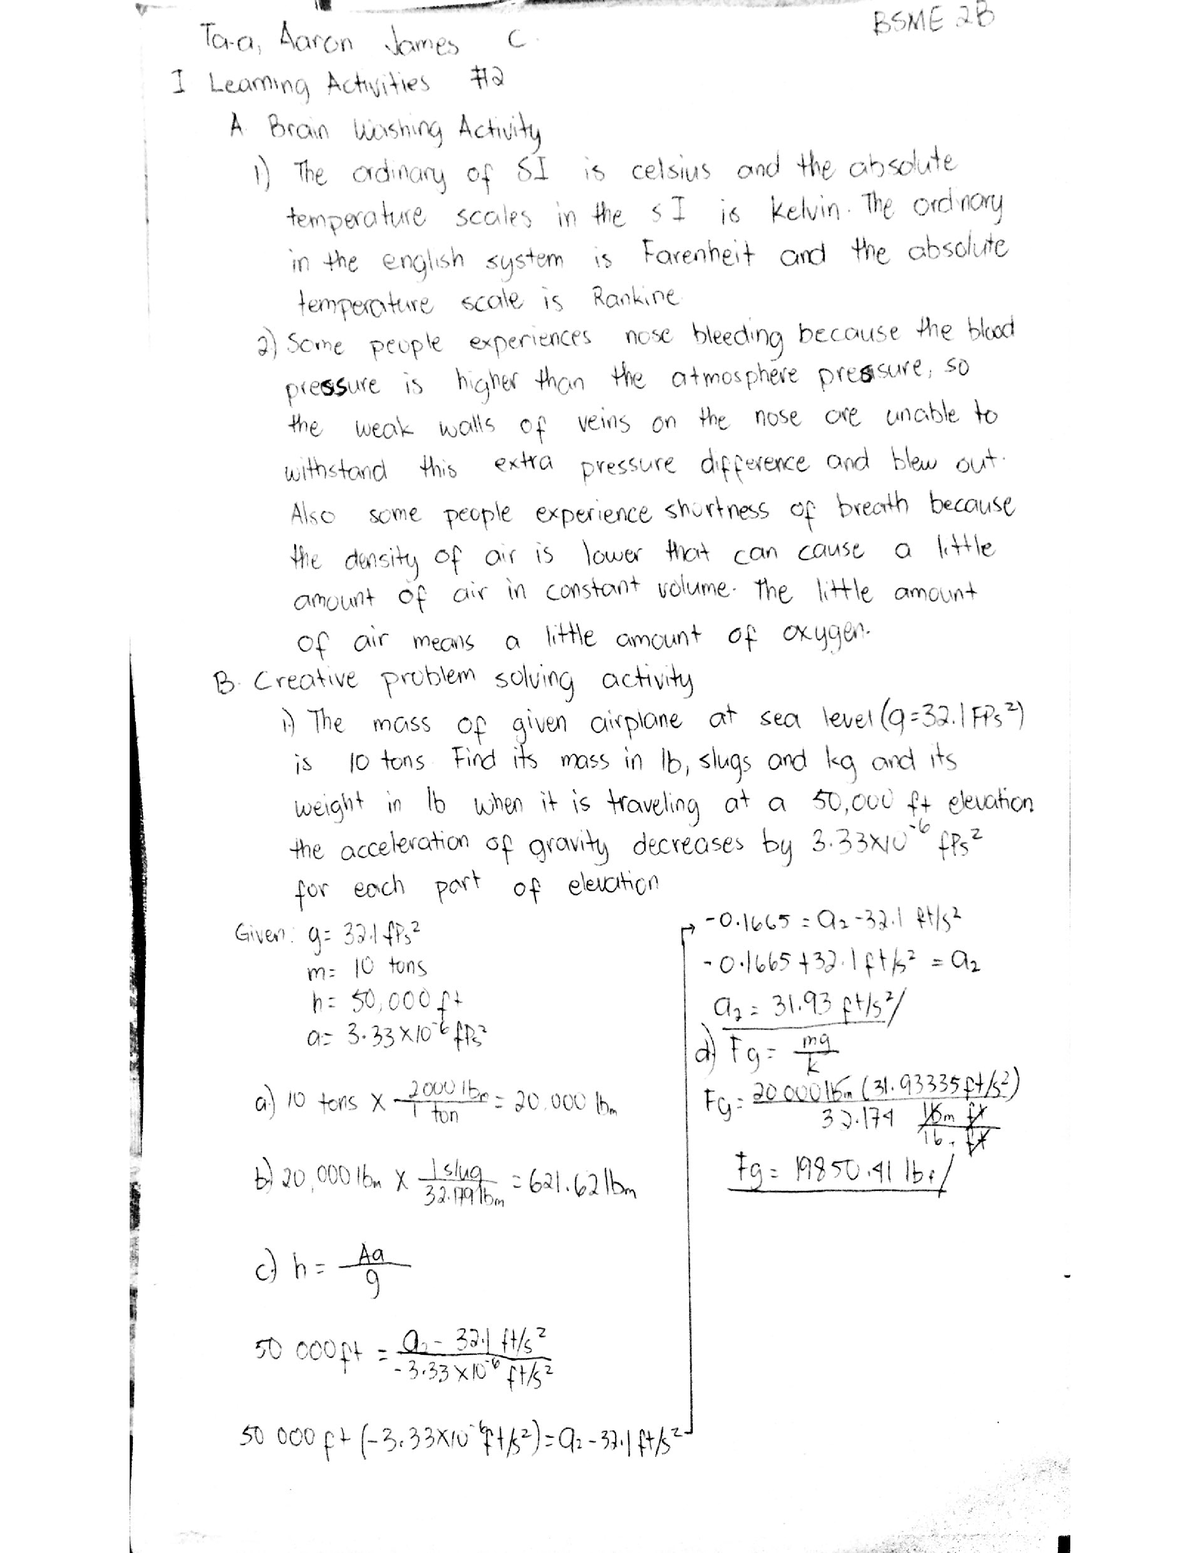 BSME 2B
Ta-a, Aaron James C.
I Learning Activities #2
A Brain Washing Activity
1) The ordinary of SI is celsius and the absolute
temperature scales in the SI is kelvin. The ordinary
in the english system is Farenheit and the absolute
temperature scale is Rankine
2) Some people experiences nose bleeding because the blood
pressure is higher than the atmosphere pressure, so
the weak walls of veins on the nose are unable to
withstand this extra pressure difference and blew out.
Also some people experience shortness of breath because
the density of air is lower that can cause a little
amount of air in constant volume. The little amount
of air means a little amount of oxygen.
B. Creative problem solving activity
1.) The mass of given airplane at sea level (g=32.1 FPs²)
is 10 tons Find its mass in lb, slugs and kg and its
weight in lb when it is traveling at a 50,000 ft elevation
the acceleration of gravity decreases by 3.33x10⁻⁶ fPs²
for each part of elevation
Given: g= 32.1 fPs²
m= 10 tons
h= 50,000 ft
a= 3.33x10⁻⁶ fPs²
a.) 10 tons x 2000 lbm / 1 ton = 20.000 lbm
b) 20,000 lbm x 1 slug / 32.174 lbm = 621.62 lbm
c.) h = Aa / g
50 000 ft = a₂ - 32.1 ft/s² / -3.33x10⁻⁶ ft/s²
50 000 ft (-3.33x10⁻⁶ ft/s²) = a₂ - 32.1 ft/s²
-0.1665 = a₂ - 32.1 ft/s²
-0.1665 + 32.1 ft/s² = a₂
a₂ = 31.93 ft/s²//
d) Fg = mg / k
Fg = 20 000 lbm (31.93335 ft/s²) / 32.174 lbm ft / lbf s²
Fg = 19850.41 lbf//